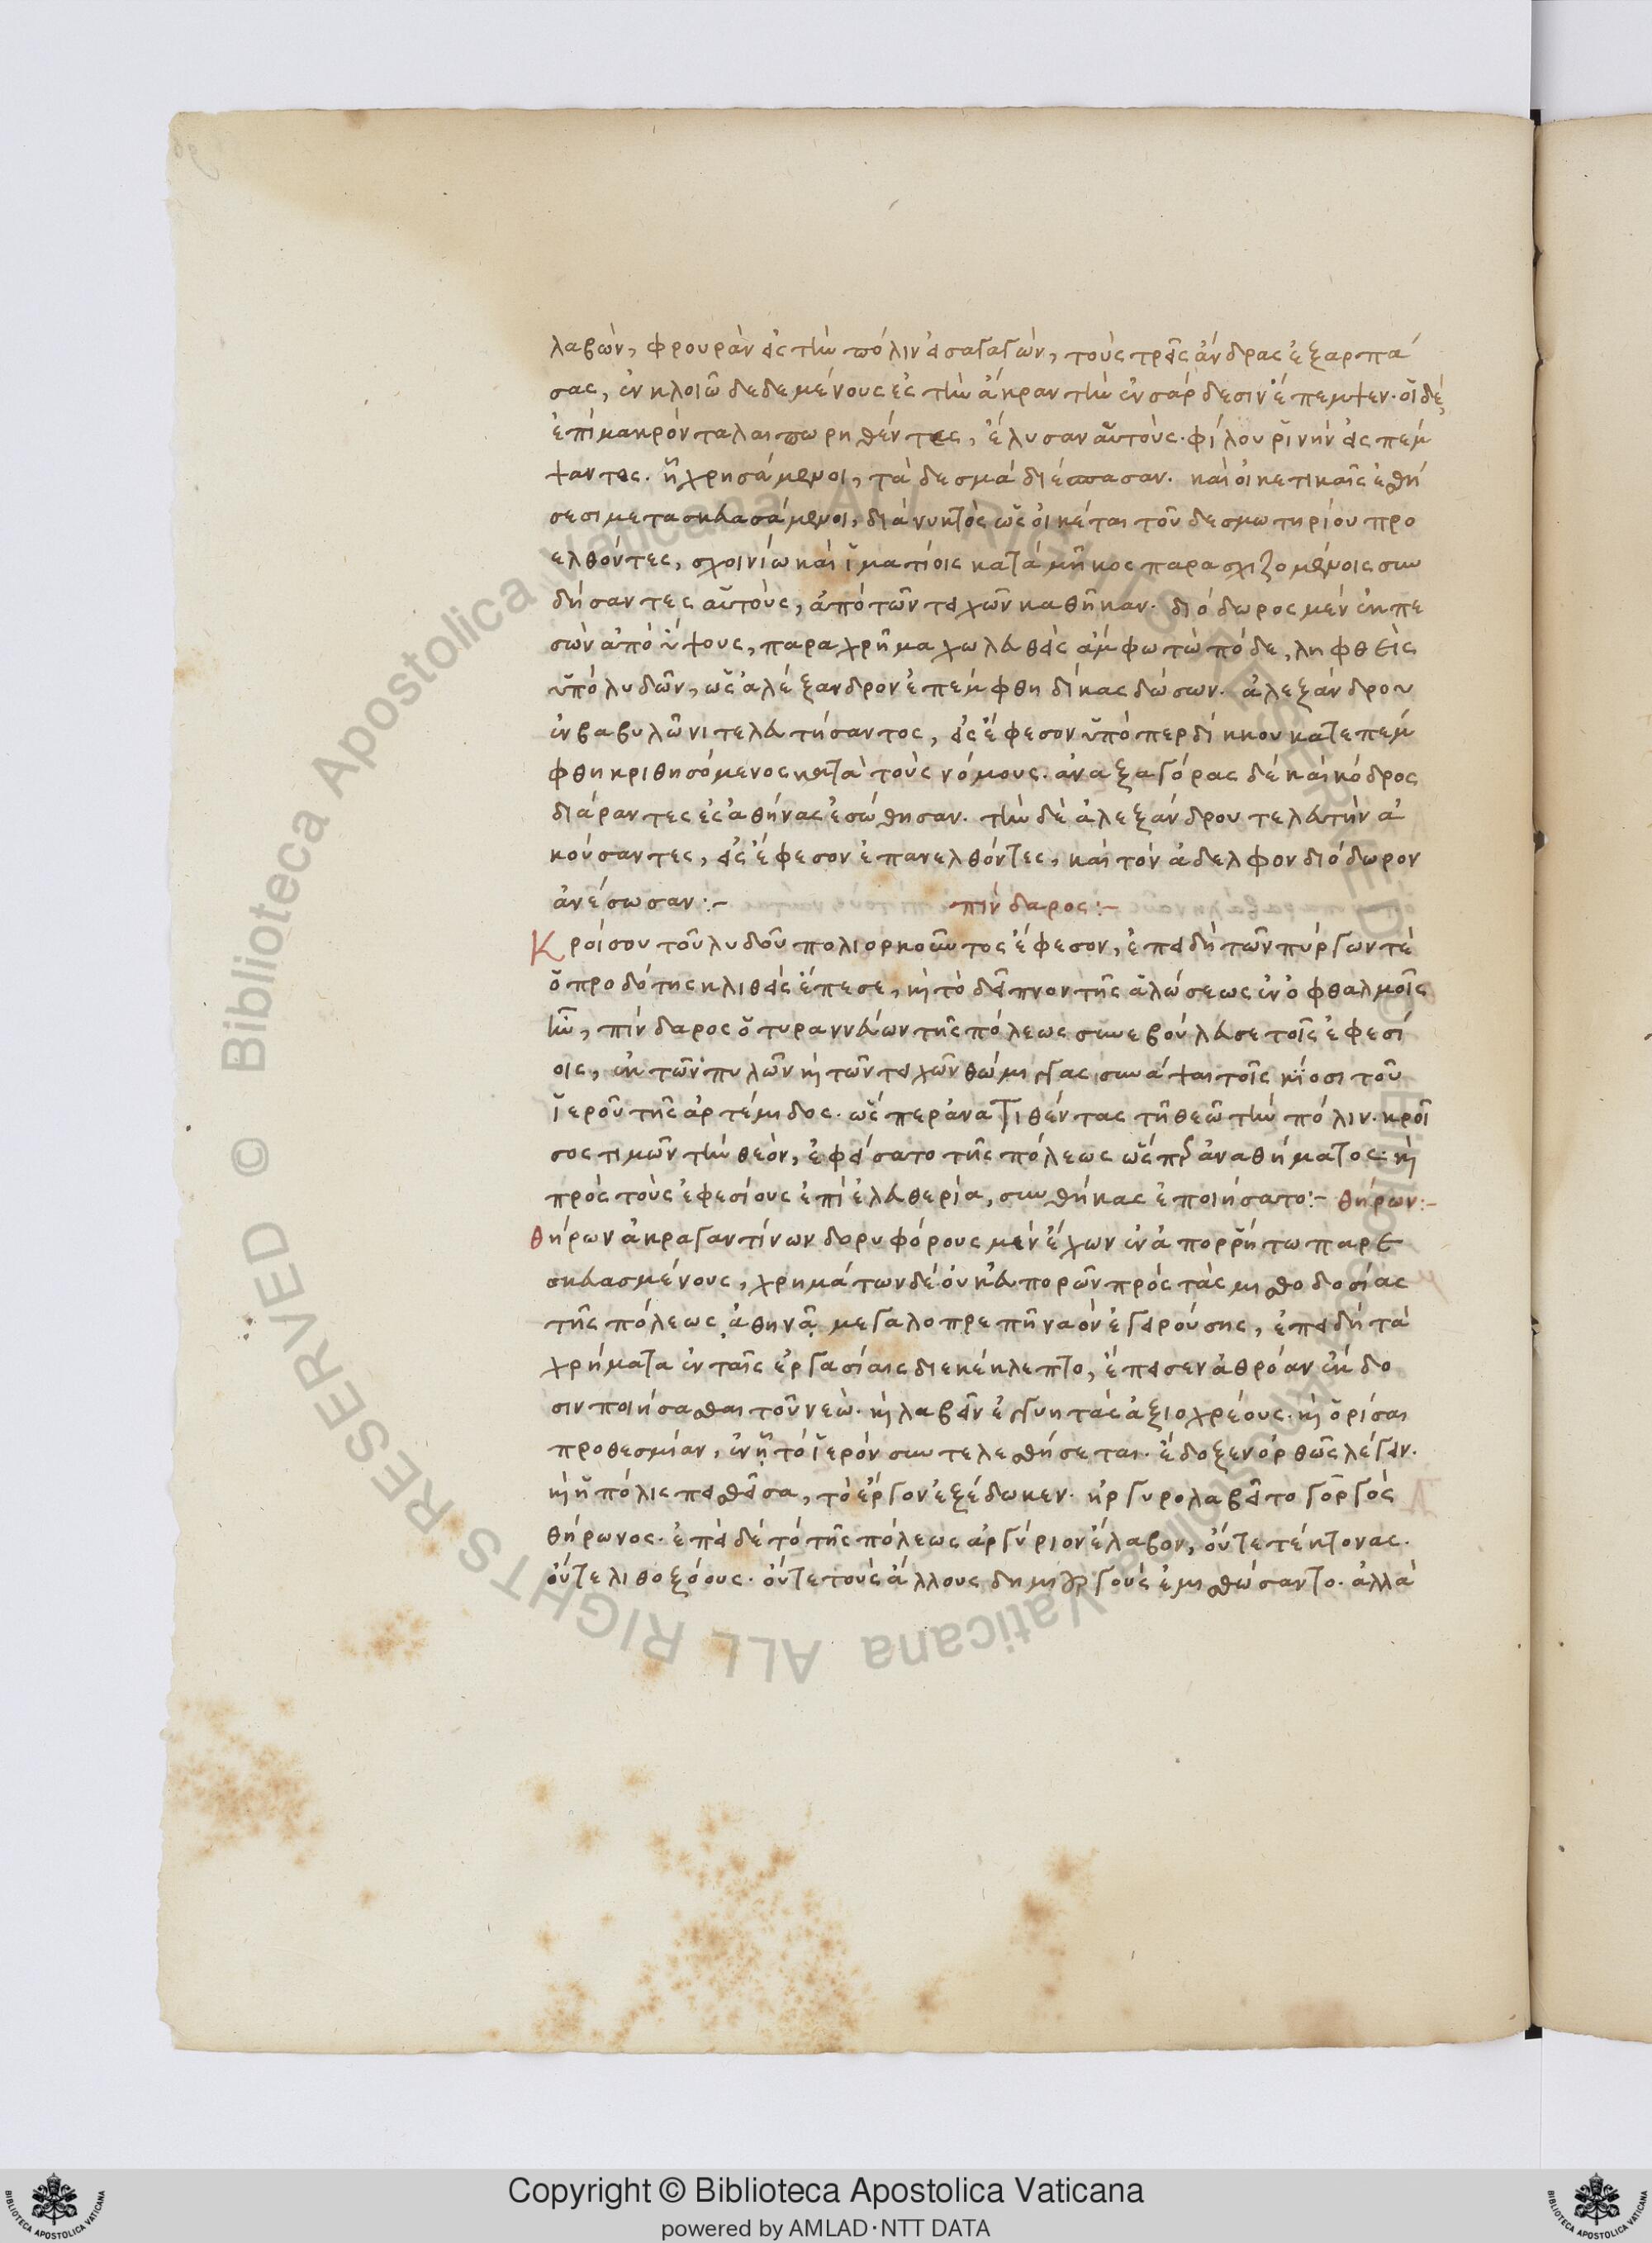 λαβὼν, φρουρὰν εἰς τὴν πόλιν εἰσαγαγὼν, τοὺς τρεῖς ἄνδρας ἐξαρπά
σας, ἐν κλοιῶ δεδεμένους ἐς τὴν ἄκραν τὴν ἐν σάρδεσιν ἔπεμψεν. οἱ δὲ
ἐπὶ μακρὸν ταλαιπωρηθέντες, ἔλυσαν αὑτούς. φίλου ῥίνην εἰς πέμ
ψαντος. ἧ χρησάμενοι, τὰ δεσμὰ διέσπασαν. καὶ οἰκετικαῖς ἐσθή
σεσι μετασκευασάμενοι, διὰ νυκτὸς ὡς οἰκέται τοῦ δεσμωτηρίου προ
ελθόντες, σχοινίω καὶ ἱματίοις κατὰ μῆκος παρασχιζομένοις συν
δήσαντες αὑτοὺς, ἀπὸ τῶν τειχῶν καθῆκαν. διόδωρος μὲν ἐκπε
σὼν ἀπὸ ὕψους, παραχρῆμα χωλευθεὶς ἄμφω τὼ πόδε, ληφθεὶς
ὑπὸ λυδῶν, ὡς ἀλέξανδρον ἐπέμφθη δίκας δώσων. ἀλεξάνδρου
ἐν βαβυλῶνι τελευτήσαντος, εἰς ἔφεσον ὑπὸ περδίκκου κατεπέμ
φθη κριθησόμενος κατὰ τοὺς νόμους. ἀναξαγόρας δὲ καὶ κόδρος
διάραντες ἐς ἀθήνας ἐσώθησαν. τὴν δὲ ἀλεξάνδρου τελευτὴν ἀ
κούσαντες, εἰς ἔφεσον ἐπανελθόντες, καὶ τὸν ἀδελφὸν διόδωρον
ἀνέσωσαν:- πίνδαρος:-
Κροίσου τοῦ λυδοῦ πολιορκοῦντος ἔφεσον, ἐπειδὴ τῶν πύργων τὲ
ὁ προδότης κλιθεὶς ἔπεσε, κὶ τὸ δεῖπνον τῆς ἁλώσεως ἐν ὀφθαλμοῖς
ἦν, πίνδαρος ὁ τυραννεύων τῆς πόλεως συνεβούλευσε τοῖς ἐφεσί
οις, ἐκ τῶν πυλῶν κὶ τῶν τειχῶν θώμιγγας συνάψαι τοῖς κίοσι τοῦ
ἱεροῦ τῆς ἀρτέμιδος. ὥσπερ ἀνατιθέντας τῆ θεῶ τὴν πόλιν. κροῖ
σος τιμῶν τὴν θεὸν, ἐφείσατο τῆς πόλεως ὥσπερ ἀναθήματος: κὶ
πρὸς τοὺς ἐφεσίους ἐπὶ ἐλευθερία, συνθήκας ἐποιήσατο:- θήρων:-
θήρων ἀκραγαντίνων δορυφόρους μὲν ἔχων ἐν ἀπορρήτω παρε
σκευασμένους, χρημάτων δὲ οὐκ εὐπορῶν πρὸς τὰς μισθοδοσίας
τῆς πόλεως ἀθηνᾷ μεγαλοπρεπῆ ναὸν ἐγειρούσης, ἐπειδὴ τὰ
χρήματα ἐν ταῖς ἐργασίαις διεκέκλεπτο, ἔπεισεν ἀθρόαν ἔκδο
σιν ποιήσασθαι τοῦ νεὼ. κὶ λαβεῖν ἐγγυητὰς ἀξιοχρέους. κὶ ὁρίσαι
προθεσμίαν, ἐν ᾗ τὸ ἱερὸν συντελεσθήσεται. ἔδοξεν ὀρθῶς λέγειν.
κὶ ἡ πόλις πεισθεῖσα, τὸ ἔργον ἐξέδωκεν. ἠργυρολαβεῖτο γοργὸς
θήρωνος. ἐπεὶ δὲ τὸ τῆς πόλεως ἀργύριον ἔλαβον, οὔτε τέκτονας.
οὔτε λιθοξόους. οὔτε τοὺς ἄλλους δημιουργοὺς ἐμισθώσαντο. ἀλλὰ
Copyright © Biblioteca Apostolica Vaticana
powered by AMLAD·NTT DATA